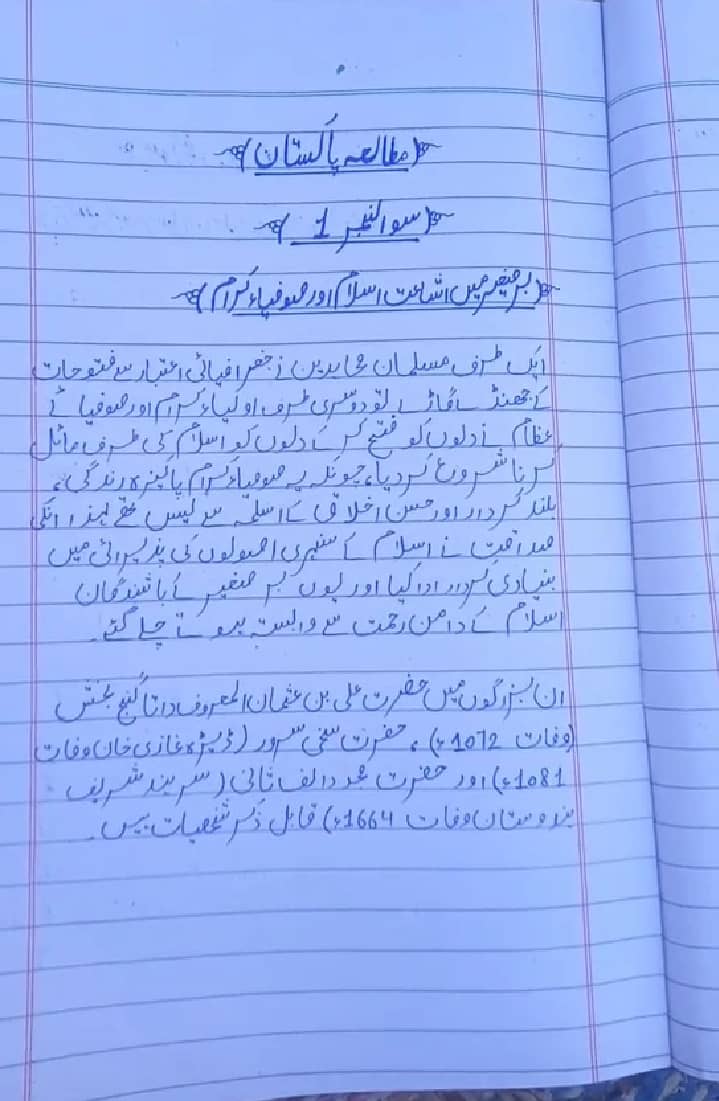 مطالعہ پاکستان
سوال نمبر 1
برصغیر میں اشاعت اسلام اور صوفیاء کرام
ایک طرف مسلمان مجاہدین نے جغرافیائی اعتبار سے فتوحات
کے جھنڈے گاڑے تو دوسری طرف اولیاء کرام اور صوفیائے
عظام نے دلوں کو فتح کر کے دلوں کو اسلام کی طرف مائل
کرنا شروع کر دیا، چونکہ یہ صوفیاء کرام پاکیزہ زندگی،
بلند کردار اور حسن اخلاق کے اسلحہ سے لیس تھے لہذا انکی
صداقت نے اسلام کے سنہری اصولوں کی پذیرائی میں
بنیادی کردار ادا کیا اور یوں برصغیر کے باشندگان
اسلام کے دامن رحمت سے وابستہ ہوتے چلے گئے۔
ان بزرگوں میں حضرت علی بن عثمان المعروف داتا گنج بخش
(وفات 1072ء)، حضرت سخی سرور (ڈیرہ غازی خان وفات
1081ء) اور حضرت مجدد الف ثانی (سرہند شریف
ہندوستان وفات 1664ء) قابل ذکر شخصیات ہیں۔